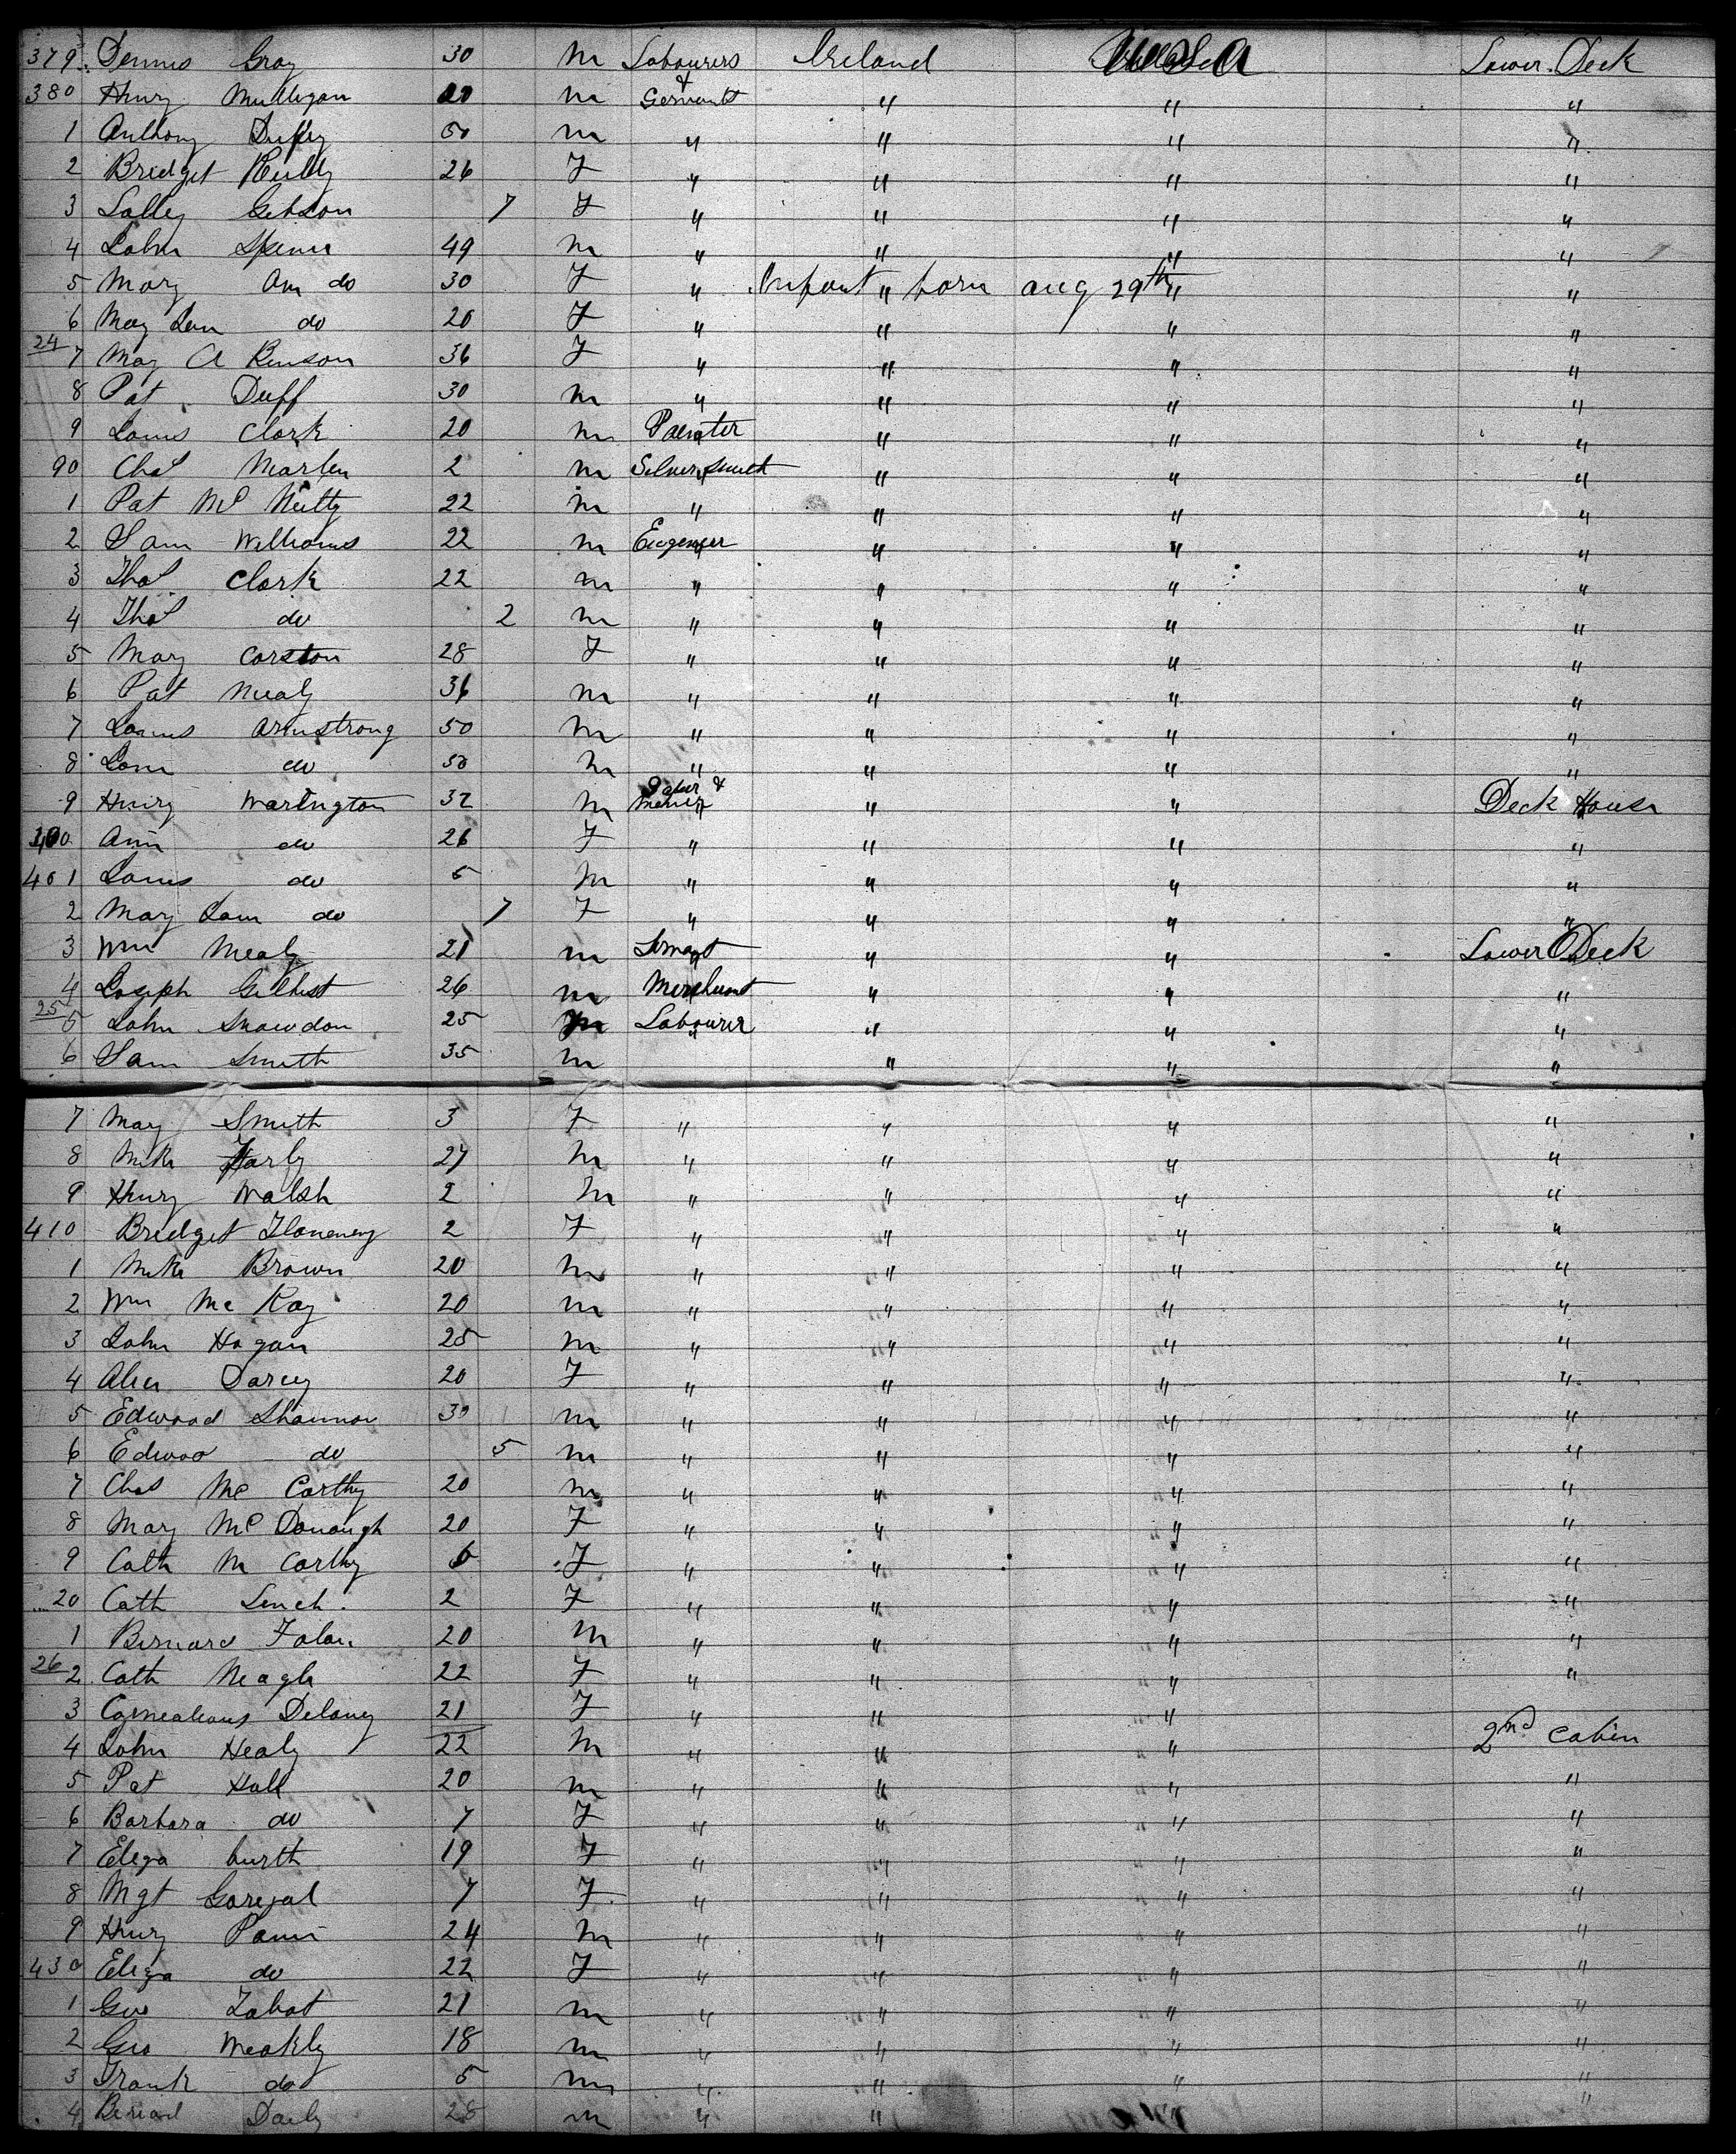 379 Dennis Gray 30 m Labourers Ireland U S A Lower Deck
380 Henry Mulligan 20 m & Servants " " "
1 Anthony Duffy 50 m " " " "
2 Bridget Reilly 26 F " " " "
3 Salley Gibson 7 F " " " "
4 John Spinn 49 m " " " "
5 Mary Ann do 30 F " Infant " born aug 29th " "
6 May Jan do 20 F " " " "
24
7 May A Benson 36 F " " " "
8 Pat Duff 30 m " " " "
9 James Clark 20 m Painter " " "
90 Chas Marlen 2 m Silversmith " " "
1 Pat Mc Nulty 22 m " " " "
2 Sam Williams 22 m Engeneer " " "
3 Thos Clark 22 m " " " "
4 Thos do 2 m " " " "
5 Mary Corston 28 F " " " "
6 Pat Nealy 36 m " " " "
7 James Armstrong 50 m " " " "
8 Jam do 50 m " " " "
9 Henry Warington 32 m & " " Deck House
400 Ann do 26 F " " " "
401 James do 5 m " " " "
2 May Jam do 7 F " " " "
3 Wm Mealy 21 m Servant " " Lower Deck
4 Joseph Gilhist 26 m Merchant " " "
25
5 John Snowdon 25 m Labourer " " "
6 Sam Smith 35 m " " "
7 May Smith 3 F " " " "
8 Mike Harly 27 m " " " "
9 Henry Walsh 2 m " " " "
410 Bridget Flanenery 2 F " " " "
1 Mike Brown 20 m " " " "
2 Wm Mc Kay 20 m " " " "
3 John Hogan 25 m " " " "
4 Alice Darcey 20 F " " " "
5 Edward Shannon 30 m " " " "
6 Edwar do 5 m " " " "
7 Chas Mc Carthy 20 m " " " "
8 Mary Mc Donough 20 F " " " "
9 Cath M Carthy 6 F " " " "
20 Cath Linch 2 F " " " "
1 Bernard Folan 20 m " " " "
26
2 Cath Neagle 22 F " " " "
3 Cornealeous Delaney 21 F " " "
4 John Healy 22 m " " " 2nd Cabin
5 Pat Hall 20 m " " " "
6 Barbara do 7 F " " " "
7 Eleza burth 19 F " " " "
8 Mgt Goreyal 7 F " " " "
9 Henry Pann 24 m " " " "
430 Eleza do 22 F " " " "
1 Geo Tabot 21 m " " " "
2 Geo Meakly 18 m " " " "
3 Frank do 5 m " " " "
4 Beriad Daily 28 m " "